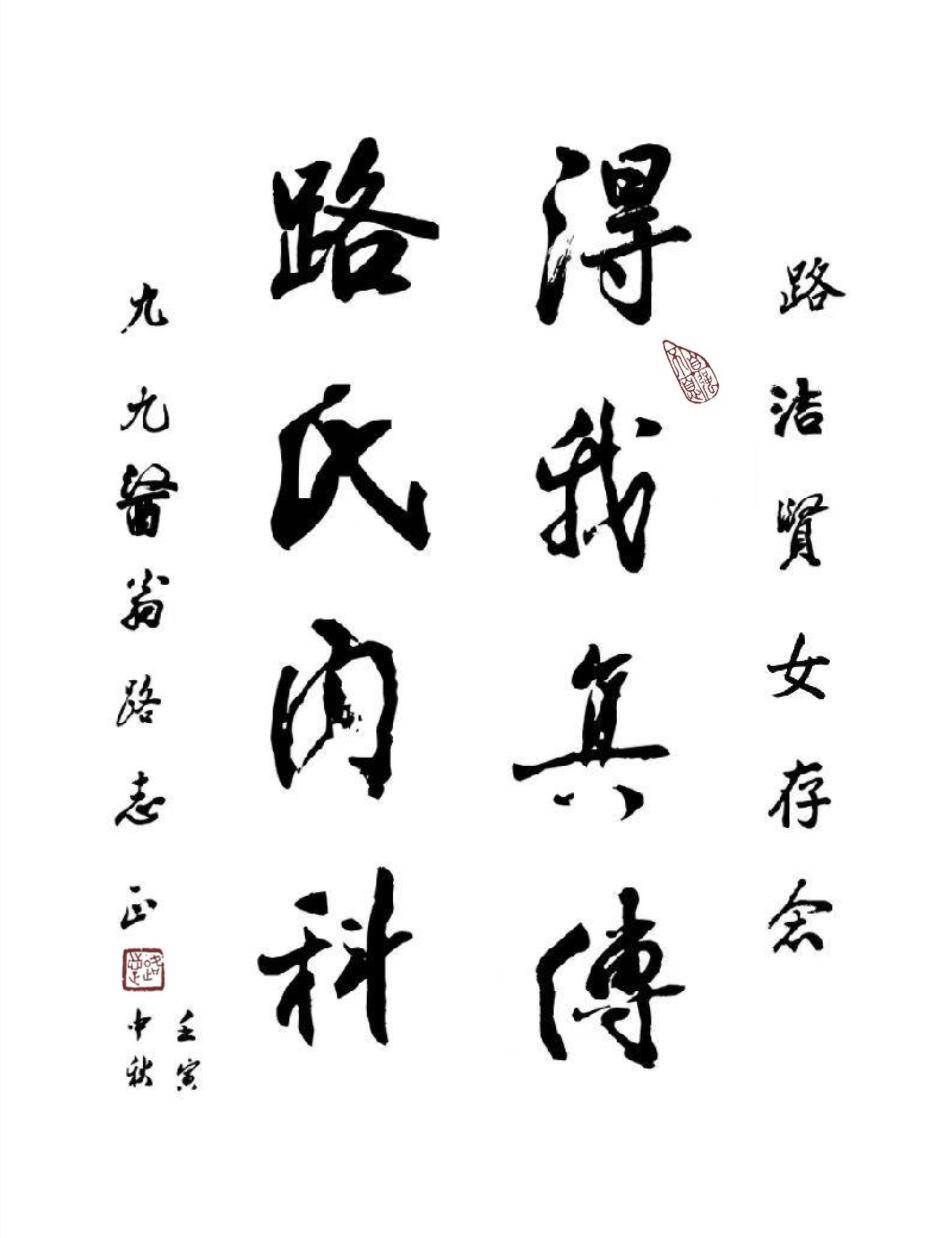 路洁賢女存念
得我真傳
路氏内科
九九醫翁路志正
壬寅
中秋